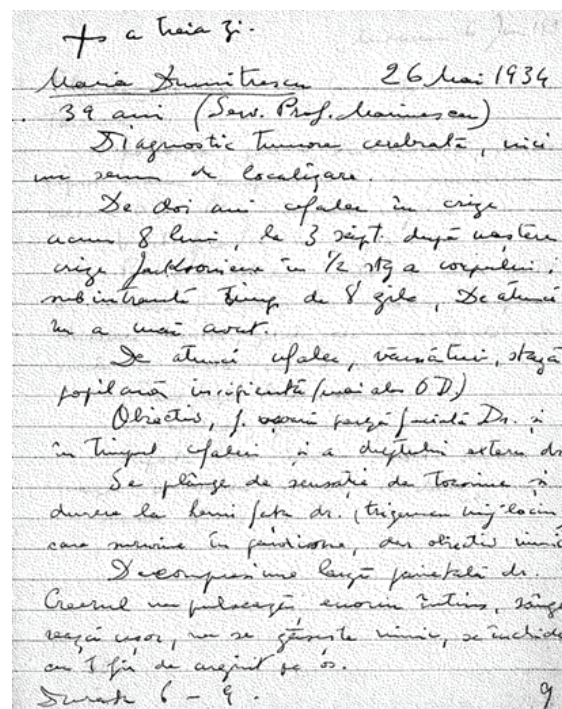 + a treia zi.
Maria Dumitrescu 26 Mai 1934
39 ani (Serv. Prof. Marinescu)
Diagnostic Tumore cerebrală, nici
un semn de localizare.
De doi ani cefalee în crize
acum 8 luni, la 3 săpt. după naștere
crize Jacksoniene în 1/2 stg a corpului,
subintrantă timp de 8 zile, De atunci
nu a mai avut.
De atunci cefalee, vărsături, stază
papilară incipientă (mai ales OD.)
Obiectiv, f. ușoară pareză facială Dr. și
în timpul cefaleei și a dreptului extern dr
Se plânge de senzație de și
durere la hemi fața dr. (trigemen mijlociu
care survine în, dar obiectiv nimic
Decompresiune largă parietală dr.
Creerul nu pulsează, enorm întins, sânge
rează ușor, nu se găsește nimic, se închide
cu 1 fir de argint pe os.
Durata 6 - 9.
9